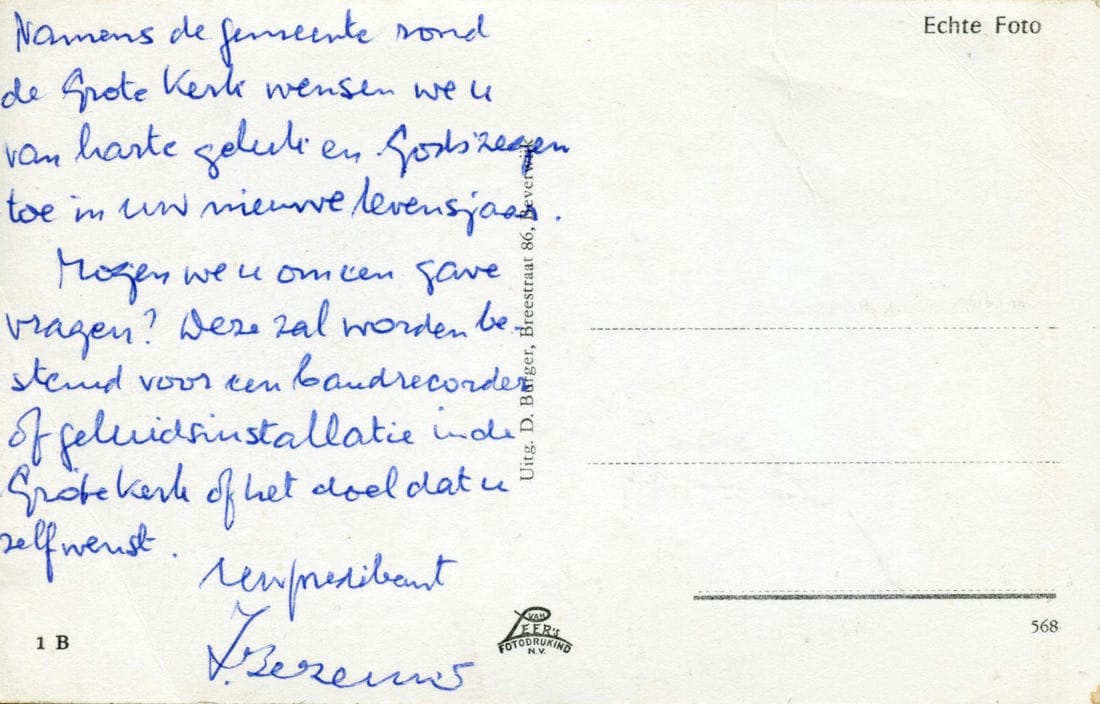 Namens de gemeente rond
de Grote Kerk wensen we u
van harte geluk en Gods zegen
toe in uw nieuwe levensjaar.
Mogen we u om een gave
vragen? Deze zal worden be-
stemd voor een bandrecorder
of geluidsinstallatie in de
Grote Kerk of het doel dat u
zelf wenst.
uw predikant
Echte Foto
Uitg. D. Burger, Breestraat 86, Beverwijk
1 B
VAN
LEER'S
FOTODRUKIND
N.V.
568